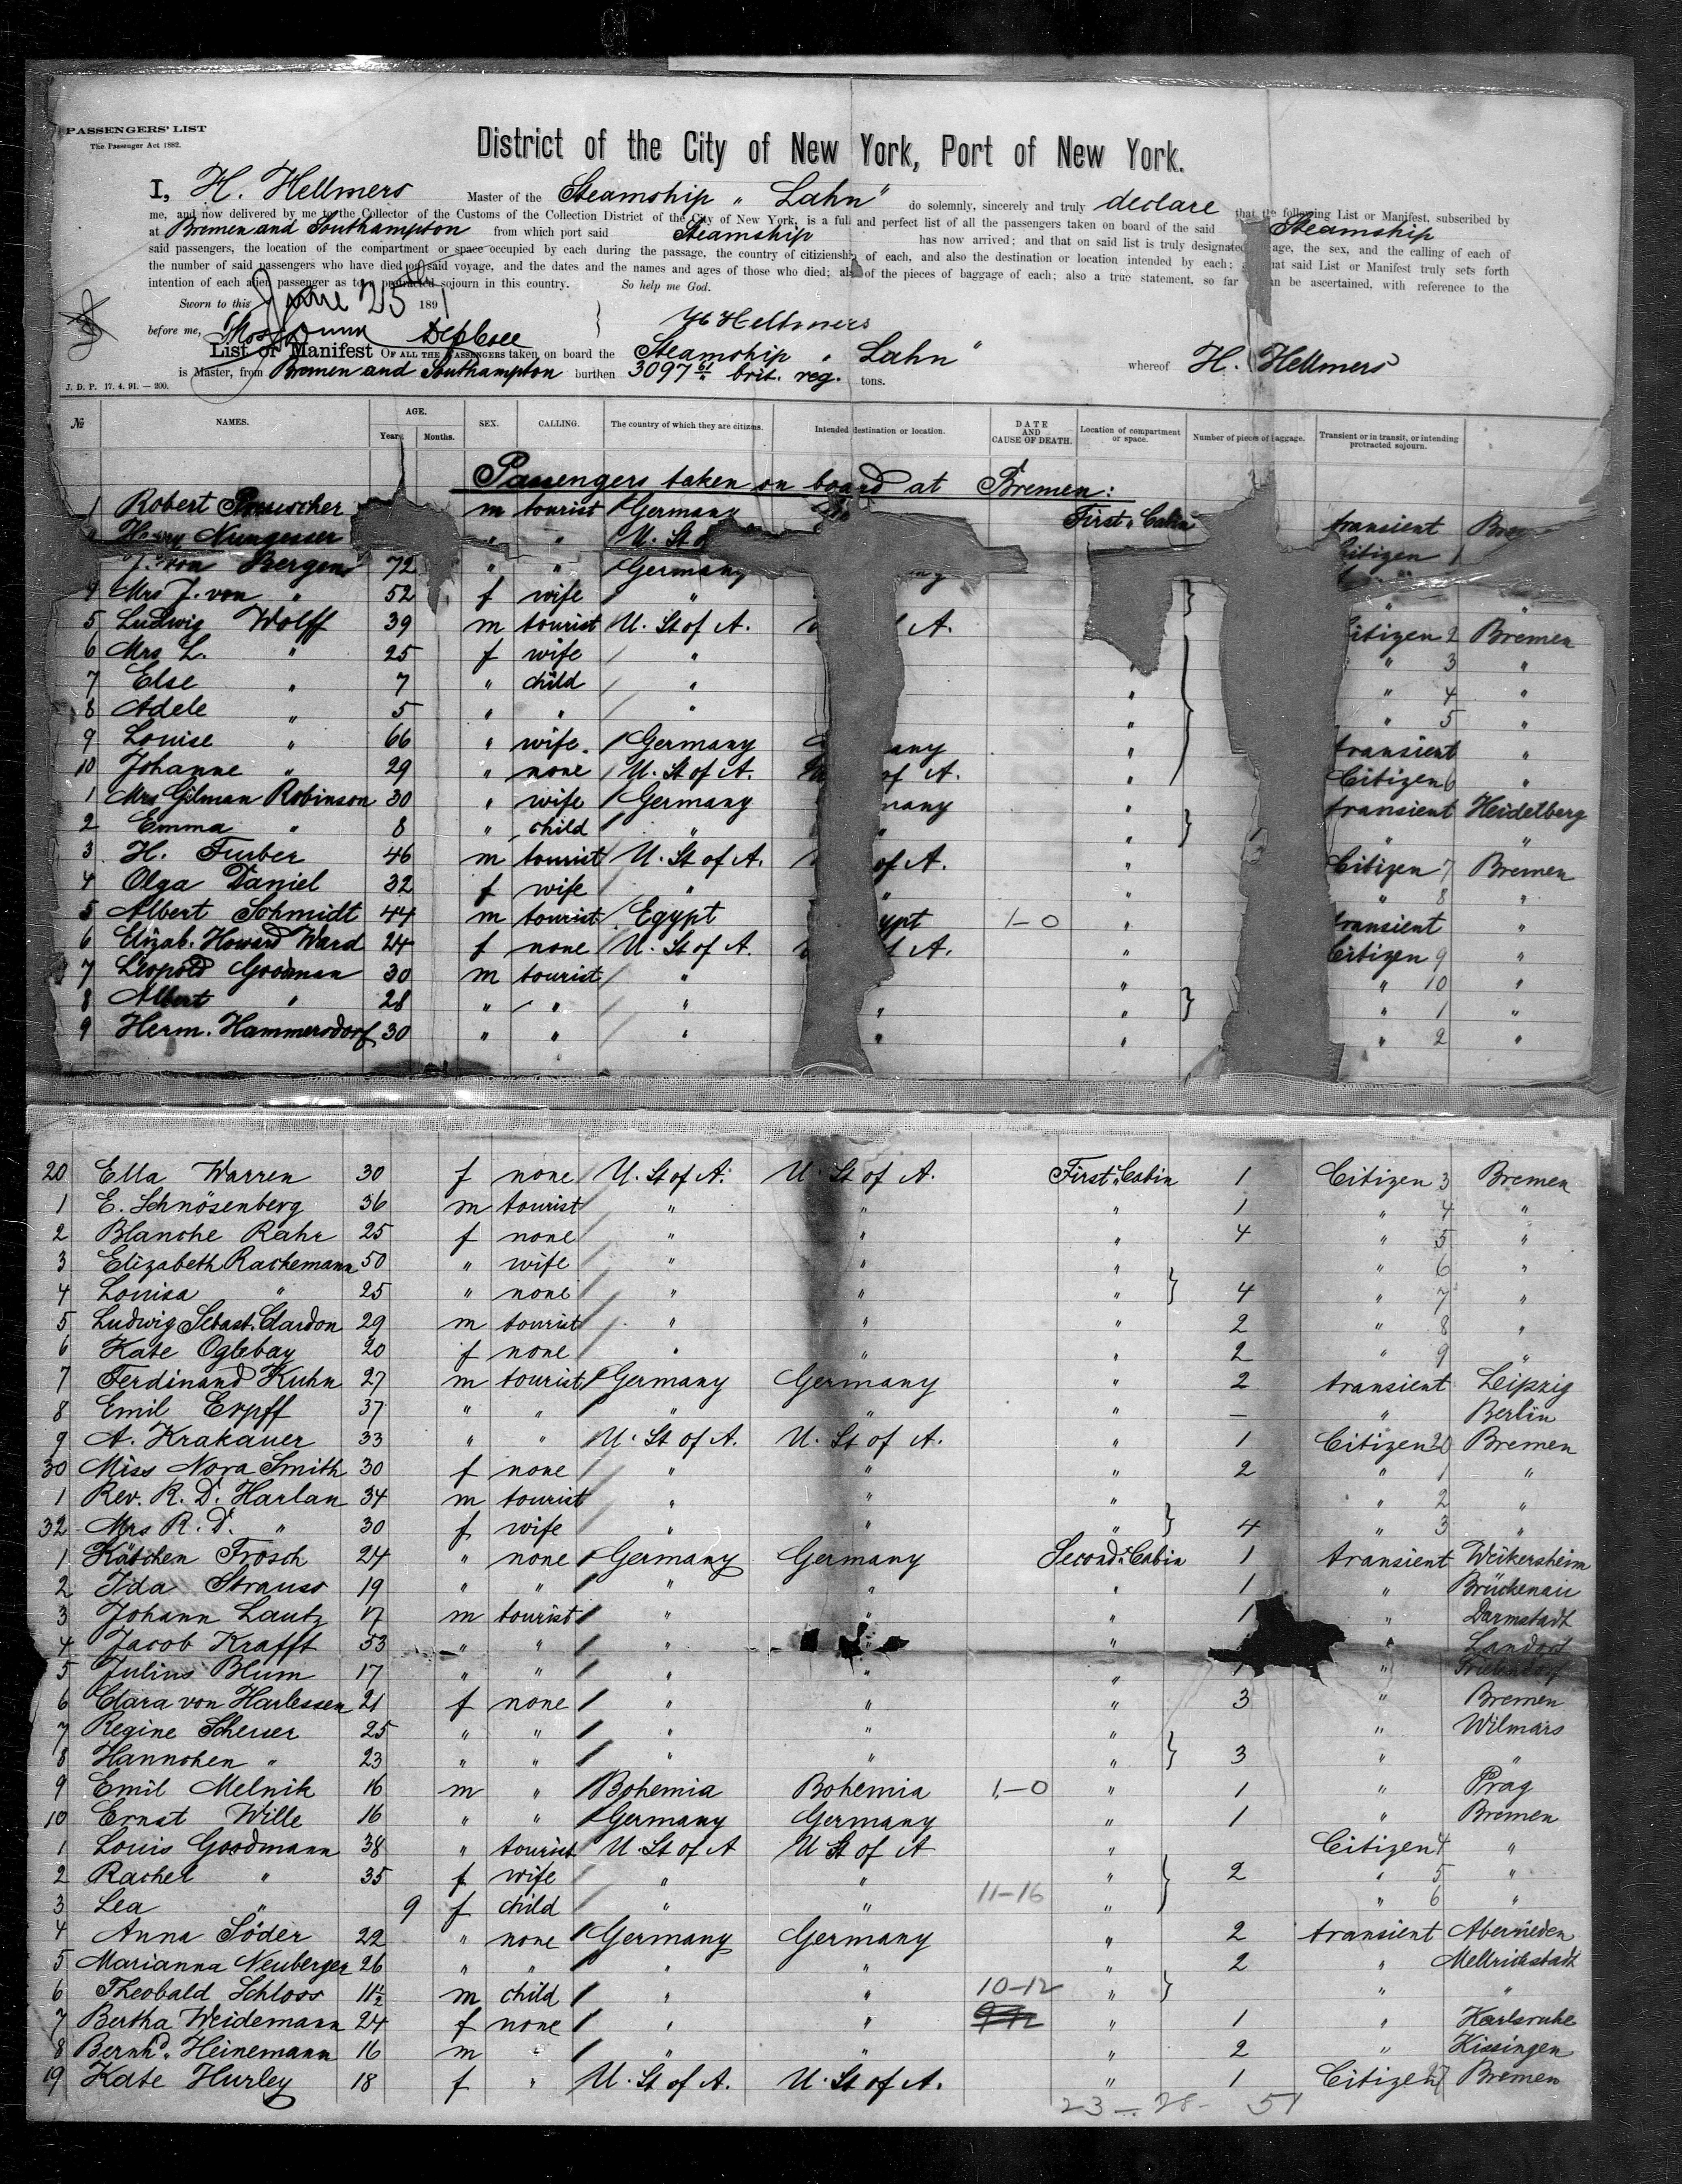 PASSENGERS' LIST
The Passenger Act 1882.
District of the City of New York, Port of New York.
I, H. Hellmers Master of the Steamship „ Lahn" do solemnly, sincerely and truly declare that the following List or Manifest, subscribed by
me, and now delivered by me to the Collector of the Customs of the Collection District of the City of New York, is a full and perfect list of all the passengers taken on board of the said Steamship
at Bremen and Southampton from which port said Steamship has now arrived; and that on said list is truly designated age, the sex, and the calling of each of
said passengers, the location of the compartment or space occupied by each during the passage, the country of citizenship of each, and also the destination or location intended by each; that said List or Manifest truly sets forth
the number of said passengers who have died on said voyage, and the dates and the names and ages of those who died; also of the pieces of baggage of each; also a true statement, so far can be ascertained, with reference to the
intention of each alien passenger as to a protracted sojourn in this country. So help me God.
Sworn to this June 25 1891
before me, H Hellmers
List or Manifest OF ALL THE PASSENGERS taken on board the Steamship „ Lahn" whereof H. Hellmers
is Master, from Bremen and Southampton burthen 3097 61 brit. reg. tons.
J. D. P. 17. 4. 91. — 200.
№ NAMES. AGE. Years Months. SEX. CALLING. The country of which they are citizens. Intended destination or location. DATE AND CAUSE OF DEATH. Location of compartment or space. Number of pieces of baggage. Transient or in transit, or intending protracted sojourn.
Passengers taken on board at Bremen:
1 Robert m tourist Germany First Cabin transient
Henry Nungesser " " U. St Citizen 1
J. von Bergen 72 " " Germany
4 Mrs J. von " 52 f wife " " "
5 Ludwig Wolff 39 m tourist U. St of A. A. Citizen 2 Bremen
6 Mrs L. " 25 f wife " " " 3 "
7 Else " 7 " child " " " 4 "
8 Adele " 5 " " " " " 5 "
9 Louise " 66 " wife Germany any " transient "
10 Johanne " 29 " none U. St of A. of A. " Citizen 6 "
1 Mrs Gilman Robinson 30 " wife Germany many " transient Heidelberg
2 Emma " 8 " child " " " " "
3 H. Furber 46 m tourist U. St of A. of A. " Citizen 7 Bremen
4 Olga Daniel 32 f wife " " " " 8 "
5 Albert Schmidt 44 m tourist Egypt ypt 1-0 " transient "
6 Elizab. Howard Ward 24 f none U. St of A. A. " Citizen 9 "
7 Leopold Goodman 30 m tourist " " " 10 "
8 Albert " 28 " " " " " " 1 "
9 Herm. Hammersdorf 30 " " " " " " 2 "
20 Ella Warren 30 f none U. St of A. U. St of A. First Cabin 1 Citizen 3 Bremen
1 E. Schnösenberg 36 m tourist " " " 1 " 4 "
2 Blanche Rahr 25 f none " " " 4 " 5 "
3 Elizabeth Rackemann 50 " wife " " " " 6 "
4 Louisa " 25 " none " " " 4 " 7 "
5 Ludwig Sebast. Clardon 29 m tourist " " " 2 " 8 "
6 Kate Oglebay 20 f none " " " 2 " 9 "
7 Ferdinand Kuhn 27 m tourist Germany Germany " 2 transient Leipzig
8 Emil Erpff 37 " " " " " — " Berlin
9 A. Krakauer 33 " " U. St of A. U. St of A. " 1 Citizen 20 Bremen
30 Miss Nora Smith 30 f none " " " 2 " 1 "
1 Rev. R. D. Harlan 34 m tourist " " " " 2 "
32 Mrs R. D. " 30 f wife " " " 4 " 3 "
1 Kätchen Frosch 24 " none Germany Germany Second Cabin 1 transient Weikersheim
2 Ida Strauss 19 " " " " " 1 " Brückenau
3 Johann Lautz 17 m tourist " " " 1 " Darmstadt
4 Jacob Krafft 53 " " " " " Landorf
5 Julius Blum 17 " " " " " " Frielendorf
6 Clara von Harlessen 21 f none " " " 3 " Bremen
7 Regine Scheuer 25 " " " " " " Wilmars
8 Hannchen " 23 " " " " " 3 " "
9 Emil Melnik 16 m " Bohemia Bohemia 1-0 " 1 " Prag
10 Ernst Wille 16 " " Germany Germany " 1 " Bremen
1 Louis Goodmann 38 " tourist U. St of A U St of A " Citizen 4 "
2 Rachel " 35 f wife " " " 2 " 5 "
3 Lea " 9 f child " " 11-16 " " 6 "
4 Anna Söder 22 " none Germany Germany " 2 transient
5 Marianna Neuberger 26 " " " " " 2 " Mellrichstadt
6 Theobald Schloss 11½ m child " " 10-12 " " "
7 Bertha Weidemann 24 f none " " " 1 " Karlsruhe
8 Bernhd. Heinemann 16 m " " " " 2 " Kissingen
19 Kate Hurley 18 f " U. St of A. U. St of A. " 1 Citizen 27 Bremen
23 - 28 - 51